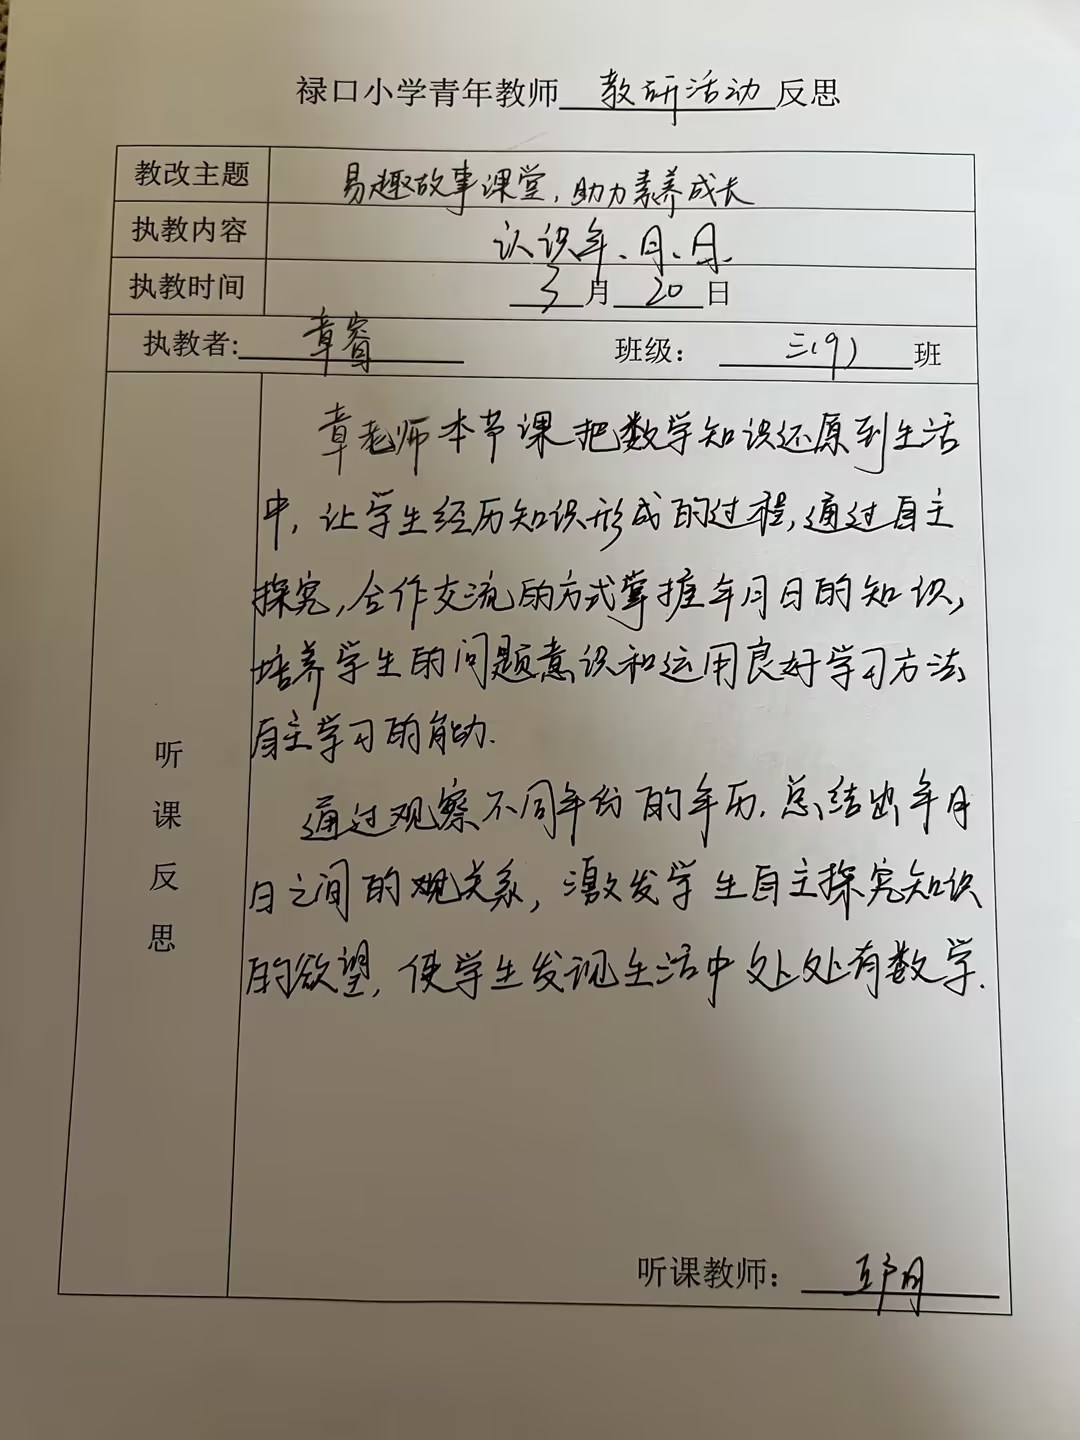 禄口小学青年教师 教研活动 反思
教改主题 易趣故事课堂,助力素养成长
执教内容 认识年、月、日.
执教时间 3月20日
执教者: 章睿 班级: 三(9) 班
章老师本节课把数学知识还原到生活
中,让学生经历知识形成的过程,通过自主
探究,合作交流的方式掌握年月日的知识,
培养学生的问题意识和运用良好学习方法
自主学习的能力.
听课反思
通过观察不同年份的年历.总结出年月
日之间的关系,激发学生自主探究知识
的欲望,使学生发现生活中处处有数学.
听课教师: